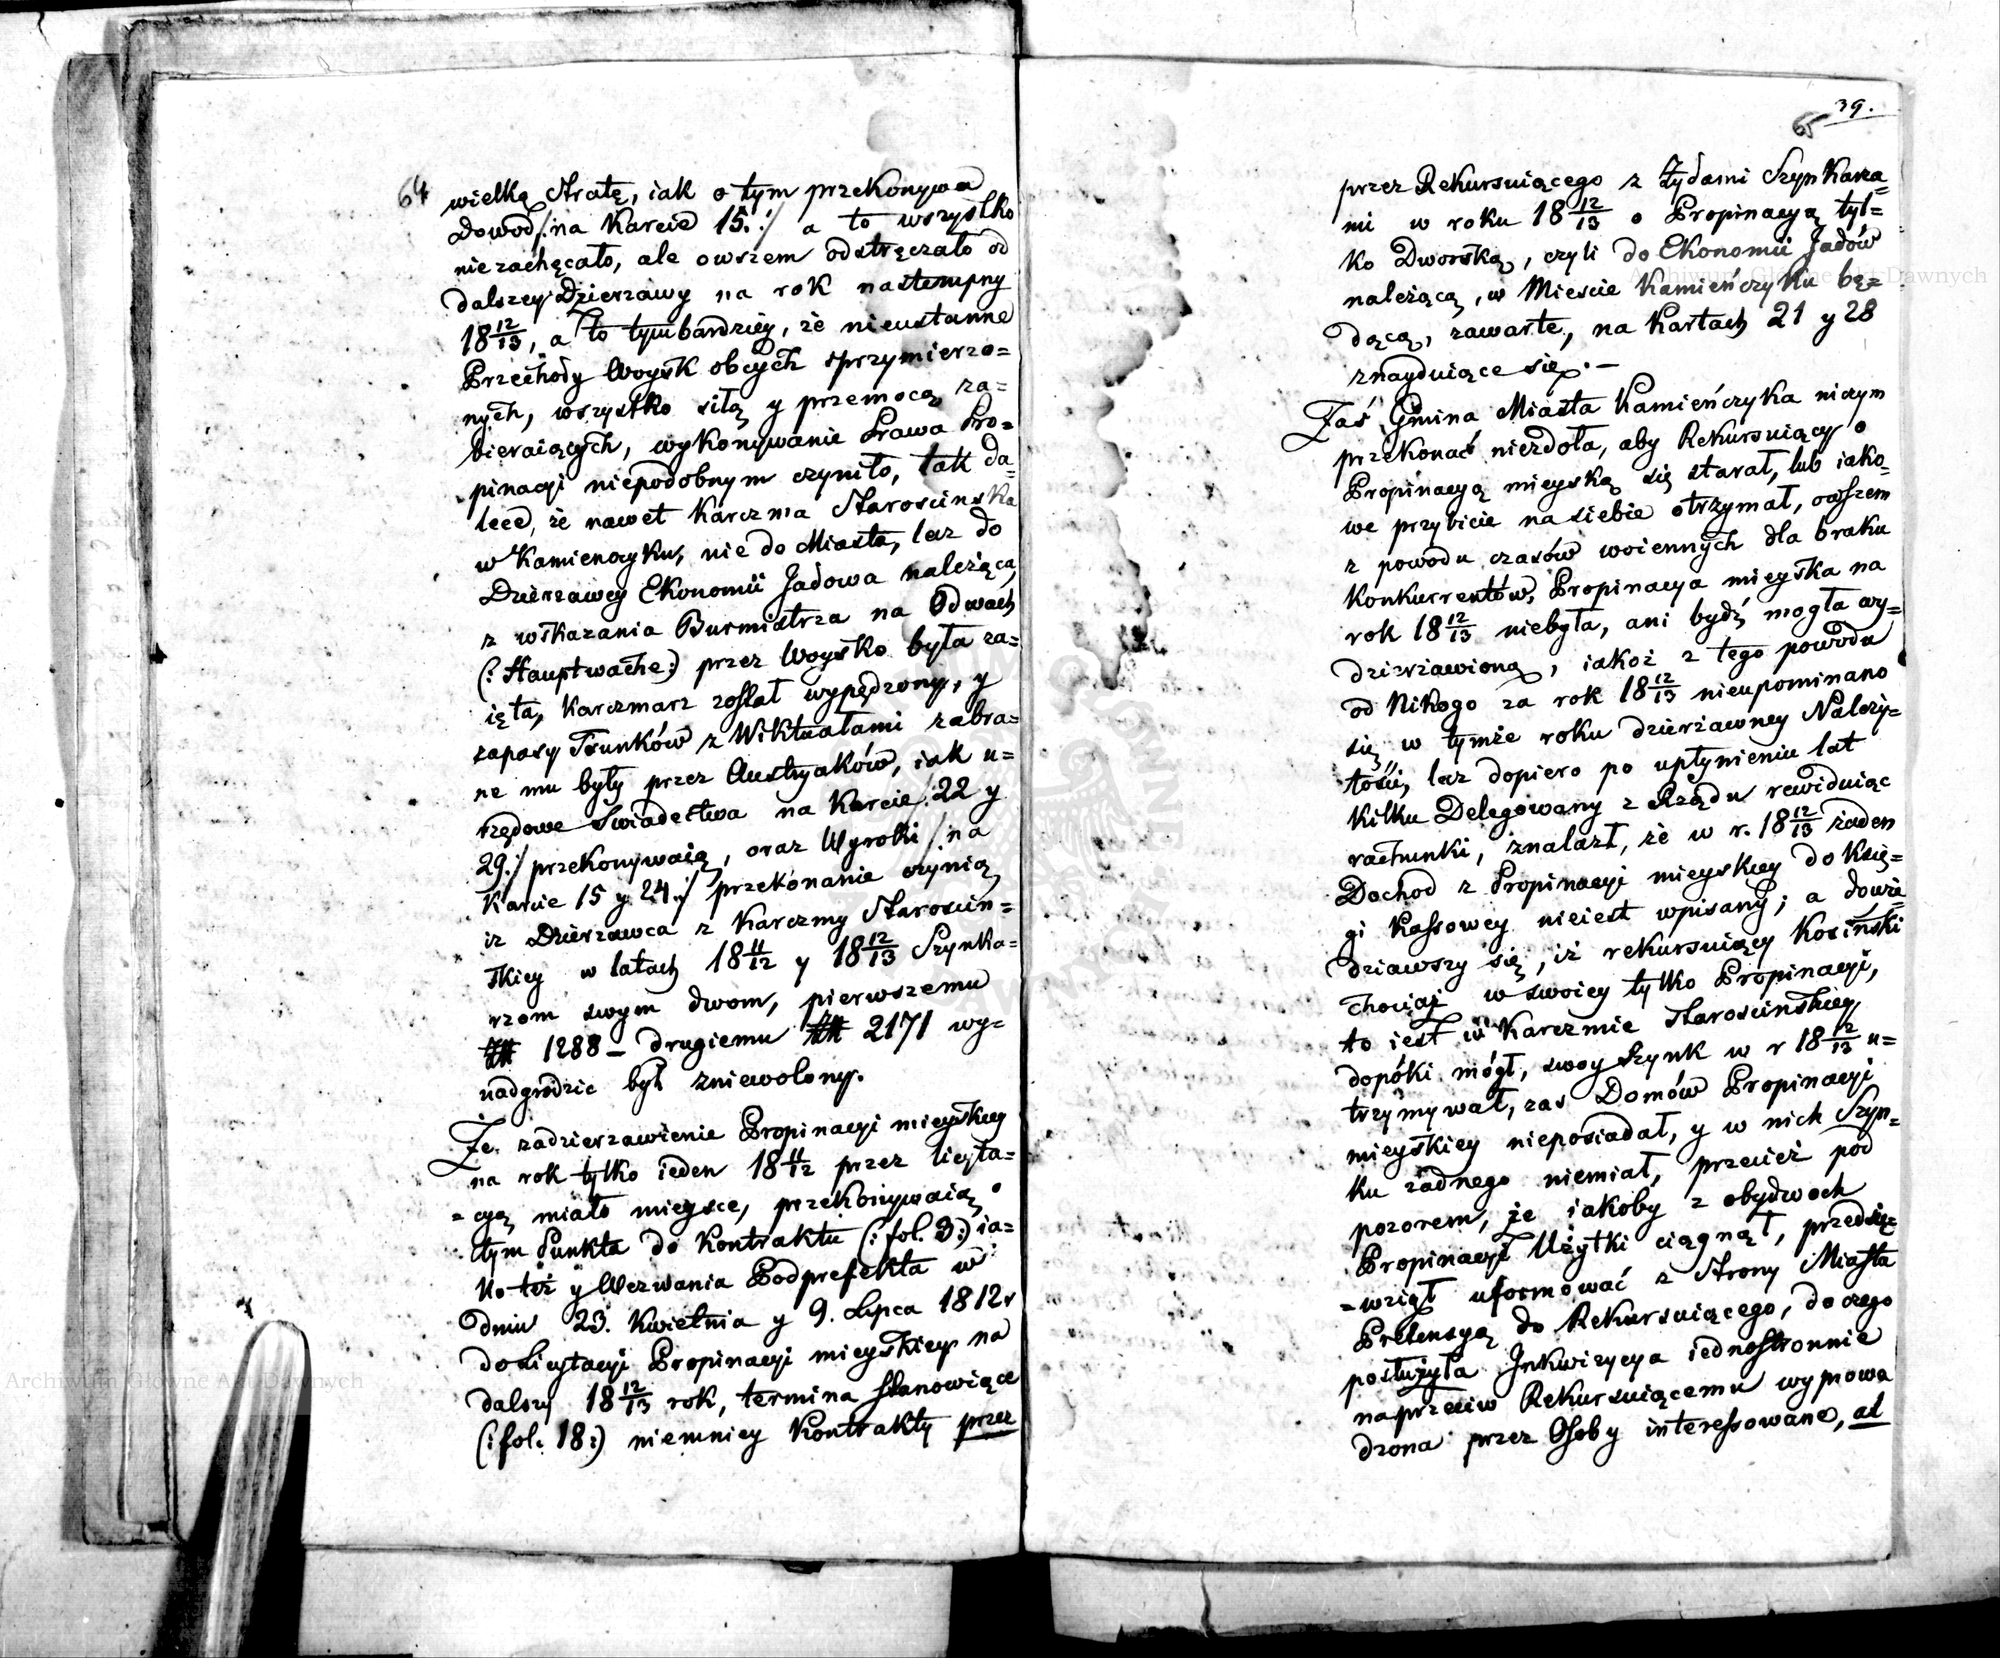 64
wielką stratę, iak o tym przekonywa
Dowod /: na Karcie 15. :/ a to wszystko
niezachęcało, ale owszem odstręczało od
dalszey Dzierzawy na rok nastempny
18 12/13, a to tymbardziey, że nieustanne
Przechody Woysk obcych sprzymierzo=
nych, wszystko siłą y przemocą za=
bieraiących, wykonywanie Prawa Pro=
pinacyi niepodobnym czyniło, tak da=
lece, że nawet Karczma Starościnska
w Kamienczyku, nie do Miasta, lecz do
Dzierzawcy Ekonomii Jadowa należąca,
z wskazania Burmistrza na Odwach
(: Hauptwache :) przez Woysko była za=
ięta, Karczmarz zostat wypędzony, y
zapasy Trunków z Wiktuałami zabra=
ne mu były przez Austryaków, iak u=
rzędowe Swiadectwa na Karcie 22 y
29. :/ przekonywaią, oraz Wyroki /: na
Karcie 15 y 24. :/ przekonanie czynią
iż Dzierzawca z Karczmy Starościn=
skiey w latach 18 11/12 y 18 12/13 Szynka=
rzom swym dwom, pierwszemu
1288 – drugiemu 2171 wy=
nadgrodzic był zniewolony.
Że zadzierzawienie Propinacyi mieyskiey
na rok tylko ieden 18 11/12 przez licyta=
=cyą miało mieysce, przekonywaią o
tym Punkta do Kontraktu (: fol. 3 :) ia=
ko też y Wezwania Podprefekta w
dniu 23. Kwietnia y 9. Lipca 1812 r
do Licytacyi Propinacyi mieyskiey na
dalszy 18 12/13 rok, termina stanowiące
(: fol. 18 :) niemniey Kontrakty przez
39.
65
przez Rekursuiącego z Żydami Szynkarza=
mi w roku 18 12/13 o Propinacyą tyl=
ko Dworską, czyli do Ekonomii Jadów
należącą, w Miescie Kamieńczyku bę=
dącą, zawarte, na Kartach 21 y 28
znayduiące się. –
Zaś Gmina Miasta Kamieńczyka niczym
przekonać niezdoła, aby Rekursuiący o
Propinacyą mieyską się starał, lub iako=
we przybicie na siebie otrzymał, owszem
z powodu czasów woiennych dla braku
Konkurrentów, Propinacya mieyska na
rok 18 12/13 niebyła, ani bydź mogła wy=
dzierżawioną, iakoż z tego powodu
od Nikogo za rok 18 12/13 nieupominano
się w tymże roku dzierżawney Należy=
tości, lecz dopiero po upłynieniu lat
kilku Delegowany z Rządu rewiduiąc
rachunki, znalazł, że w r. 18 12/13 żaden
Dochod z Propinacyi mieyskiey do Księ=
gi Kassowey nieiest wpisany; a dowie=
dziawszy się, iż rekursuiący Kosiński
chociaż w swoiey tylko Propinacyi,
to iest w Karczmie Starościńskiey,
dopóki mógł, swoy Szynk w r 18 12/13 u=
trzymywał, zas Domów Propinacyi
mieyskiey nieposiadał, y w nich Szyn=
ku żadnego niemiał, przecież pod
pozorem, że iakoby z obydwoch
Propinacyi Użytki ciągnął, przedsię=
=wziął uformować z Strony Miasta
Pretensyą do Rekursuiącego, do czego
posłużyła Inkwizycya iednostronnie
naprzeciw Rekursuiącemu wyprowa
dzona przez Osoby interessowane, al
Archiwum Główne Akt Dawnych
Archiwum Główne Akt Dawnych